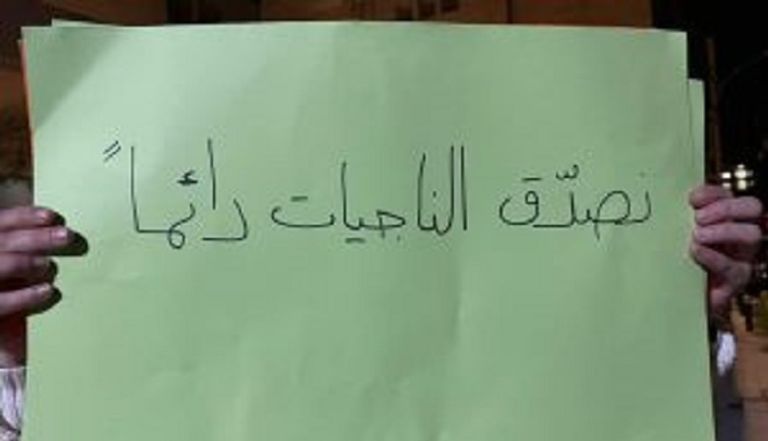 نصدّق الناجيات دائماً